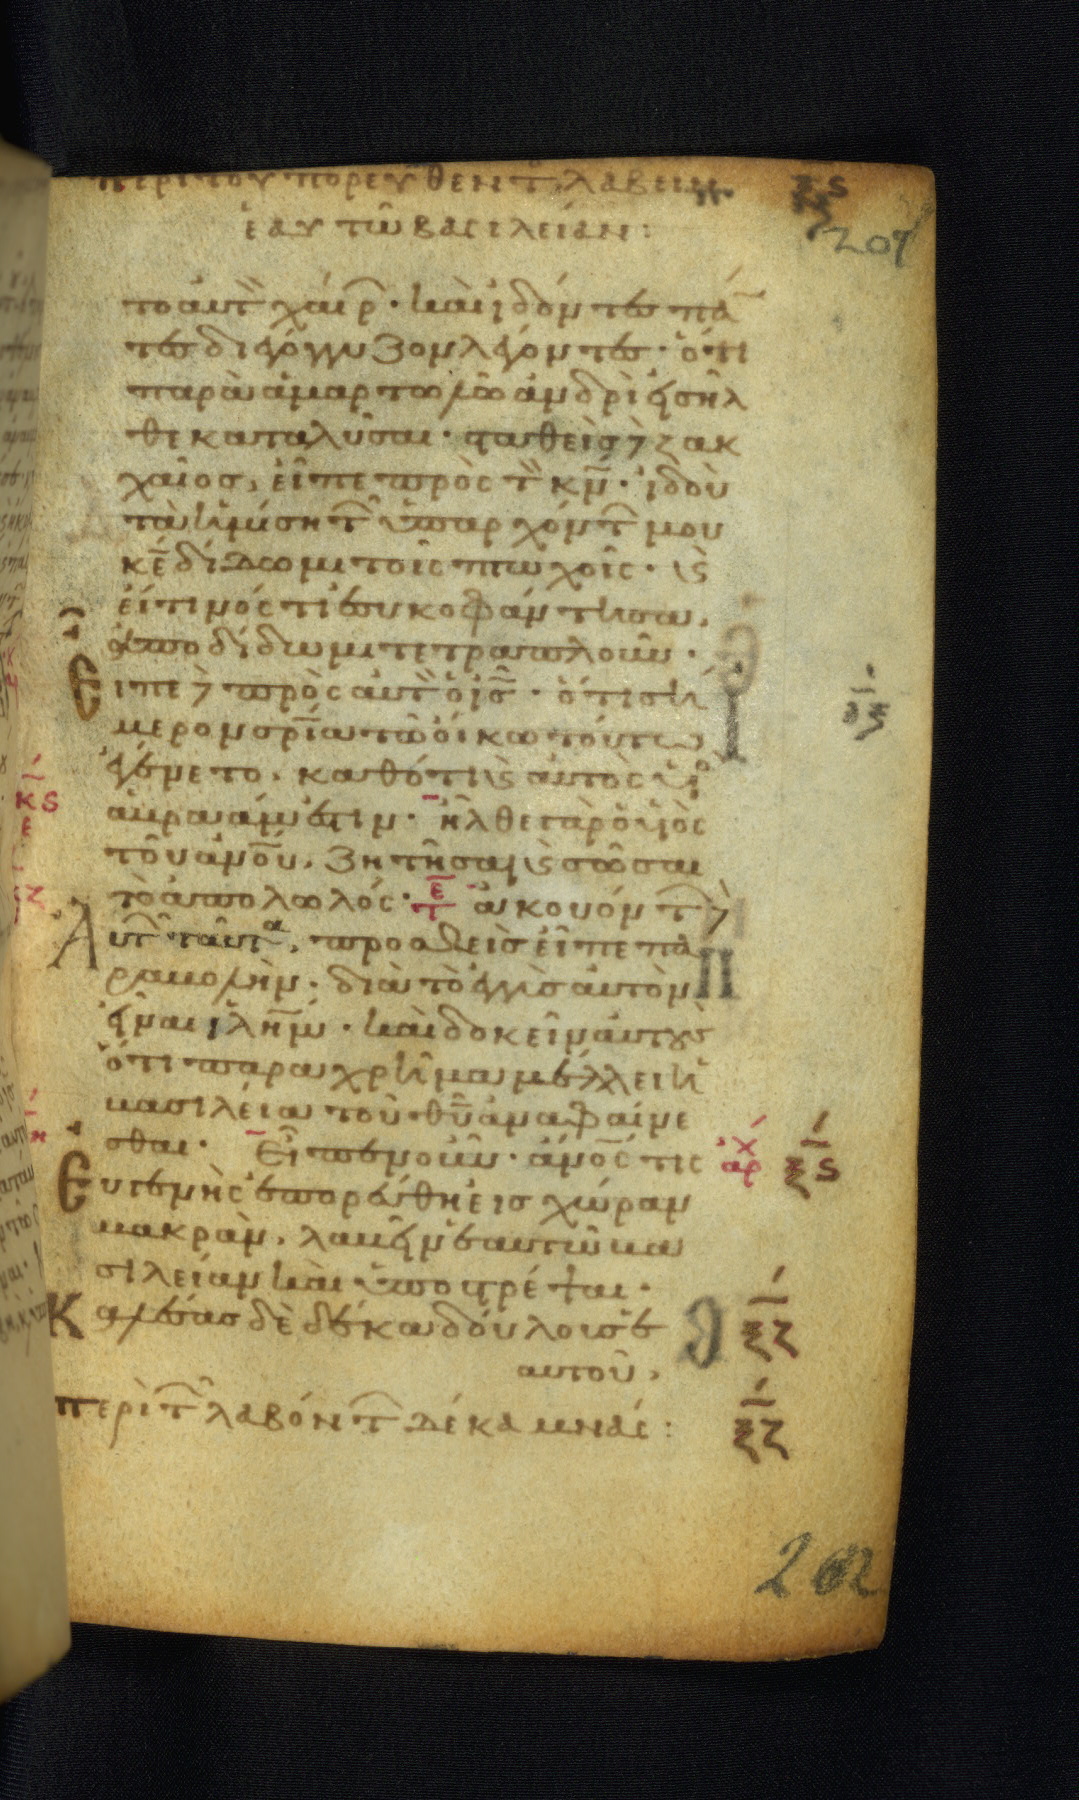 περι του πορευθεντ λαβειν
ἑαυτῶ βασιλείαν:
ξς
201
το αὐτ χαίρ · καὶ ἰδόντες πά
τες διεγόγγυζον λέγοντες · ὅτι
παρὰ ἁμαρτωλῶ ἀνδρὶ εἰσῆλ
θε καταλῦσαι · σταθεὶς δὲ ζακ
χαῖος, εἶπε πρὸς τ κν · ἰδοὺ
τὰ ἡμίση τ ὑπαρχόντ μου
κε δίδωμι τοῖς πτωχοῖς · κ
εἴ τινός τι ἐσυκοφάντησα,
ἀποδίδωμι τετραπλοῦν ·
Εἶπε δὲ πρὸς αὐτ ὁ ις · ὅτι σή
μερον σρία τῶ οἴκω τούτω
ἐγένετο, καθότι κ αὐτὸς υἱὸ
αβραάμ ἐστιν · ἦλθε γὰρ ὁ υἱὸς
τοῦ ανου, ζητῆσαι κ σῶσαι
τὸ ἀπολωλός · ἀκουόντ δὲ
Αὐτ ταῦτα, προσθεὶς εἶπε πα
ραβολὴν · διὰ τὸ ἐγγὺς αὐτὸν
εἶναι ιλημ · καὶ δοκεῖν αὐτοὺς
ὅτι παραχρῆμα μέλλει ἡ
βασιλεία τοῦ θυ ἀναφαίνε
σθαι · Εἶπεν οὖν · ανος τις
αρχ
ξς
Εὐγενὴς ἐπορεύθη εἰς χώραν
μακρὰν, λαβεῖν ἑαυτῶ βα
σιλείαν καὶ ὑποστρέψαι ·
Καλέσας δὲ δέκα δούλους ἑ
αυτοῦ,
ξζ
περὶ τ λαβόντ δέκα μνάς:
ξζ
202